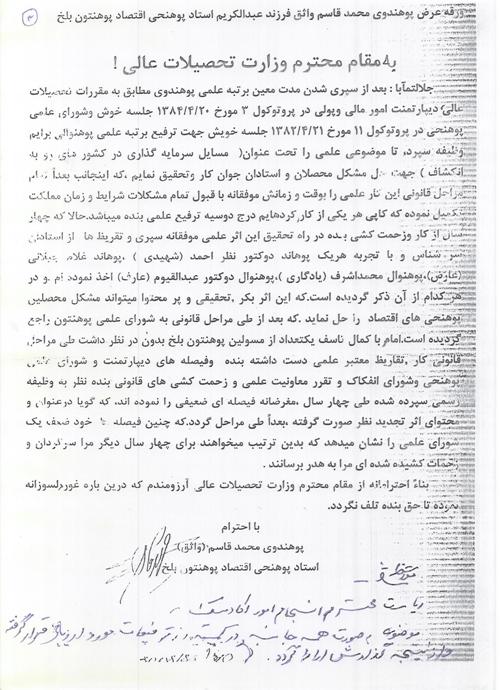 ورقه عرض پوهندوی محمد قاسم واثق فرزند عبدالکریم استاد پوهنحی اقتصاد پوهنتون بلخ
به مقام محترم وزارت تحصیلات عالی !
جلالتمآبا : بعد از سپری شدن مدت معین برتبه علمی پوهندوی مطابق به مقررات تحصیلات
عالی دیپارتمنت امور مالی وپولی در پروتوکول ۳ مورخ ۱۳۸۴/۴/۲۰ جلسه خوش وشورای علمی
پوهنحی در پروتوکول ۱۱ مورخ ۱۳۸۲/۴/۲۱ جلسه خویش جهت ترفیع برتبه علمی پوهنوالی برایم
وظیفه سپرد، تا موضوعی علمی را تحت عنوان( مسایل سرمایه گذاری در کشور های رو به
انکشاف ) جهت حل مشکل محصلان و استادان جوان کار وتحقیق نمایم ،که اینجانب بعداً تمام
مراحل قانونی این کار علمی را بوقت و زمانش موفقانه با قبول تمام مشکلات شرایط و زمان مملکت
تکمیل نموده که کاپی هر یکی از کار کردهایم درج دوسیه ترفیع علمی بنده میباشد.حالا که چهار
سال از کار وزحمت کشی بنده در راه تحقیق این اثر علمی موفقانه سپری و تقریظ ها از استادان
سر شناس و با تجربه هریک پوهاند دوکتور نظر احمد (شهیدی ) ،پوهاند غلام جیلانی
(عارض)،پوهنوال محمداشرف (یادگاری )،پوهنوال دوکتور عبدالقیوم (عارف) اخذ نموده ام و در
هر کدام از آن ذکر گردیده است.که این اثر بکر ،تحقیقی و پر محتوا میتواند مشکل محصلین
پوهنحی های اقتصاد را حل نماید .که بعد از طی مراحل قانونی به شورای علمی پوهنتون راجع
گردیده است.امام با کمال تاسف یکتعداد از مسولین پوهنتون بلخ بدون در نظر داشت طی مراحل
قانونی کار ،تقاریظ معتبر علمی دست داشته بنده وفیصله های دیپارتمنت و شورای علمی
پوهنحی وشورای انفکاک و تقرر معاونیت علمی و زحمت کشی های قانونی بنده نظر به وظیفه
رسمی سپرده شده طی چهار سال ،مغرضانه فیصله ای ضعیفی را نموده اند، که گویا درعنوان و
محتوای اثر تجدید نظر صورت گرفته ،بعداً طی مراحل گردد.که چنین فیصله ها خود ضعف یک
شورای علمی را نشان میدهد که بدین ترتیب میخواهند برای چهار سال دیگر مرا سرگردان و
زحمات کشیده شده ای مرا به هدر برسانند .
بناءً احترامانه از مقام محترم وزارت تحصیلات عالی آرزومندم که درین باره غوردلسوزانه
نموده تا حق بنده تلف نگردد.
با احترام
پوهندوی محمد قاسم (واثق)
استاد پوهنحی اقتصاد پوهنتون بلخ
ریاست محترم انسجام امور اکادمیک
موضوع به صورت همه جانبه در کمیته ترفیعات مورد ارزیابی قرار گرفته